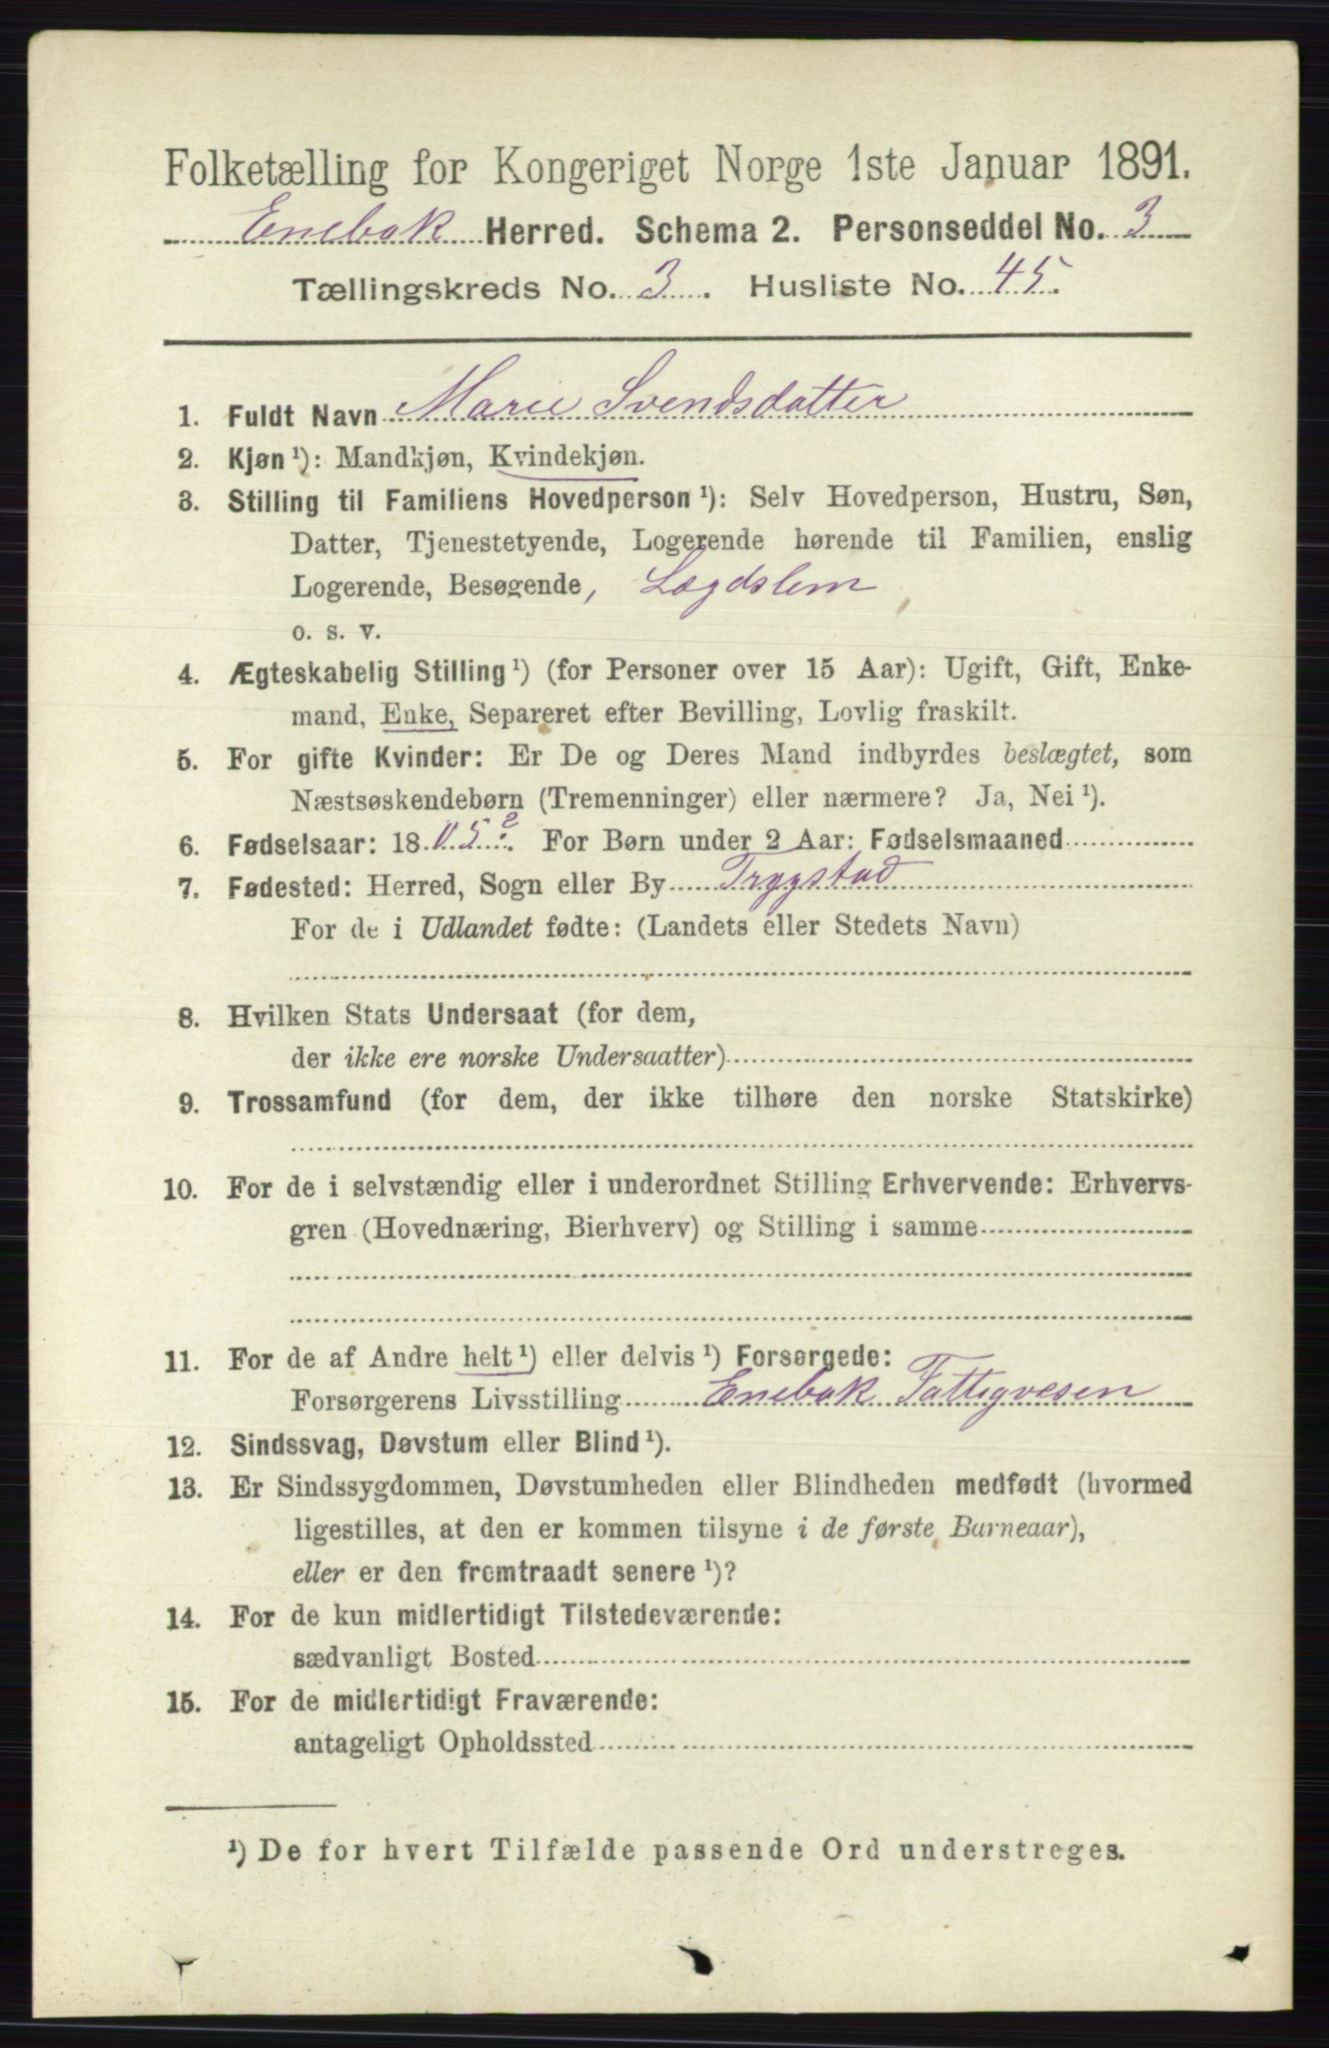 Folketælling for Kongeriget Norge 1ste Januar 1891.
Enebak Herred. Schema 2. Personseddel No. 3
Tællingskreds No. 3. Husliste No. 45.
1. Fuldt Navn Marie Svendsdatter
2. Kjøn ¹): Mandkjøn, Kvindekjøn.
3. Stilling til Familiens Hovedperson ¹): Selv Hovedperson, Hustru, Søn,
Datter, Tjenestetyende, Logerende hørende til Familien, enslig
Logerende, Besøgende, Lægdslem
o. s. v.
4. Ægteskabelig Stilling ¹) (for Personer over 15 Aar): Ugift, Gift, Enke-
mand, Enke, Separeret efter Bevilling, Lovlig fraskilt.
5. For gifte Kvinder: Er De og Deres Mand indbyrdes beslægtet, som
Næstsøskendebørn (Tremenninger) eller nærmere? Ja, Nei ¹).
6. Fødselsaar: 1805?. For Børn under 2 Aar: Fødselsmaaned
7. Fødested: Herred, Sogn eller By Trygstad
For de i Udlandet fødte: (Landets eller Stedets Navn)
8. Hvilken Stats Undersaat (for dem,
der ikke ere norske Undersaatter)
9. Trossamfund (for dem, der ikke tilhøre den norske Statskirke)
10. For de i selvstændig eller i underordnet Stilling Erhvervende: Erhvervs-
gren (Hovednæring, Bierhverv) og Stilling i samme
11. For de af Andre helt ¹) eller delvis ¹) Forsørgede:
Forsørgerens Livsstilling Enebak Fattigvesen
12. Sindssvag, Døvstum eller Blind ¹).
13. Er Sindssygdommen, Døvstumheden eller Blindheden medfødt (hvormed
ligestilles, at den er kommen tilsyne i de første Barneaar),
eller er den fremtraadt senere ¹)?
14. For de kun midlertidigt Tilstedeværende:
sædvanligt Bosted
15. For de midlertidigt Fraværende:
antageligt Opholdssted
¹) De for hvert Tilfælde passende Ord understreges.